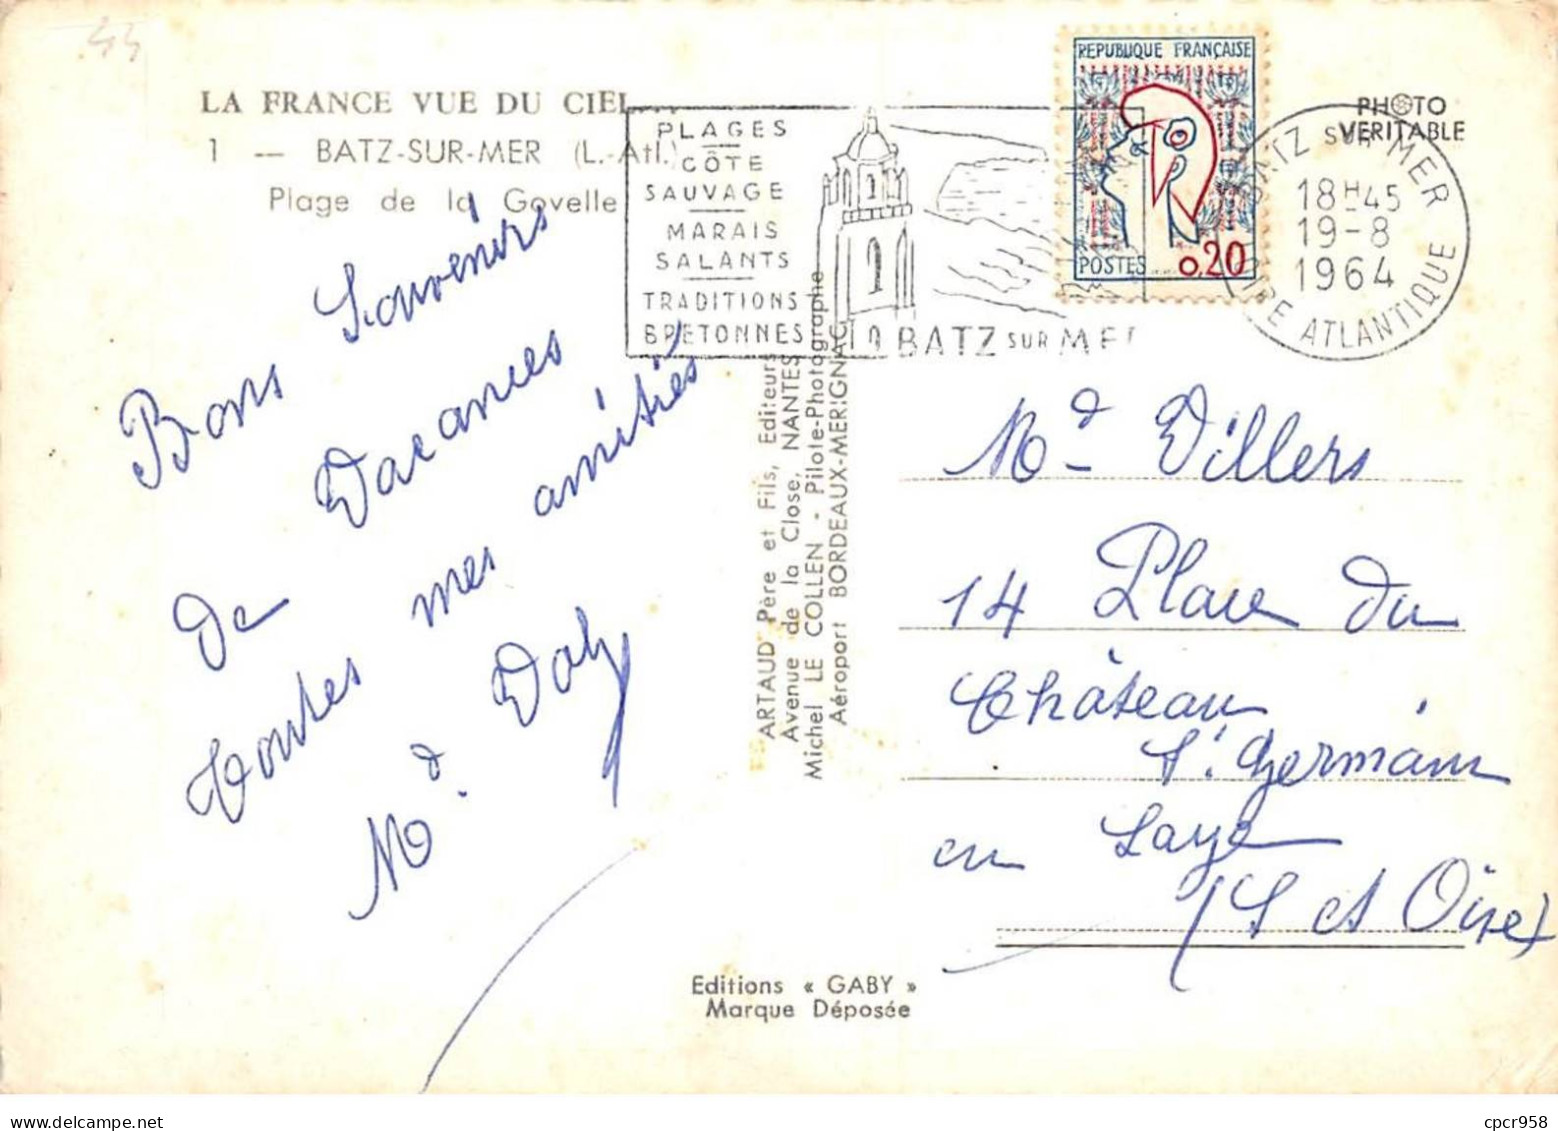 44
LA FRANCE VUE DU CIEL...
1 — BATZ-SUR-MER (L.-Atl.)
Plage de la Govelle
PLAGES
CÔTE
SAUVAGE
MARAIS
SALANTS
TRADITIONS
BRETONNES
BATZ SUR MER
REPUBLIQUE FRANÇAISE
POSTES
0,20
PHOTO
VERITABLE
BATZ SUR MER
18H45
19-8
1964
LOIRE ATLANTIQUE
Bons Souvenirs
De Vacances
toutes mes amitiés
Md. Doly
ARTAUD Père et Fils, Editeurs
Avenue de la Close, NANTES
Michel LE COLLEN - Pilote-Photographe
Aéroport BORDEAUX-MERIGNAC
Md Villers
14 Place du
Château
St Germain
en Laye
(S et Oise)
Editions « GABY »
Marque Déposée
cpcr958